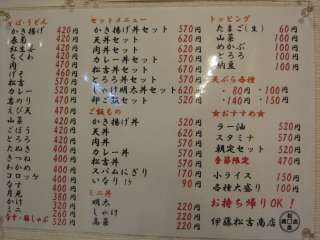 そばうどん
かき揚げ 420円
春菊 420円
紅生姜 420円
ちくわ 420円
肉 420円
げそ 460円
松吉 570円
カレー 520円
岩のり 470円
天玉 470円
山菜 420円
ごぼう 420円
とろろ 420円
たぬき 400円
きつね 400円
わかめ 400円
コロッケ 400円
なす 400円
月見 400円
かけ 320円
ミニ 260円
セットメニュー
かき揚げ丼セット 570円
天丼セット 620円
肉丼セット 620円
カレー丼セット 570円
松吉丼セット 670円
とろろ天丼セット 670円
しゃけ明太丼セット 620円
卵ご飯セット 520円
ご飯もの
かき揚げ丼 470円
天丼 520円
肉丼 520円
カレー丼 520円
松吉丼 570円
スパムにぎり 170円
いなり 90円
ミニ丼
明太 220円
しゃけ 220円
高菜 220円
トッピング
たまご(生) 60円
山菜 100円
めかぶ 100円
とろろ 100円
納豆 100円
天ぷら各種
・80円 ・100円
・140円 ・150円
★おすすめ★
ラー油 520円
スタミナ 570円
朝定セット 520円
季節限定 470円
小ライス 150円
各種大盛り 100円
お持ち帰りOK!
伊藤松吉商店